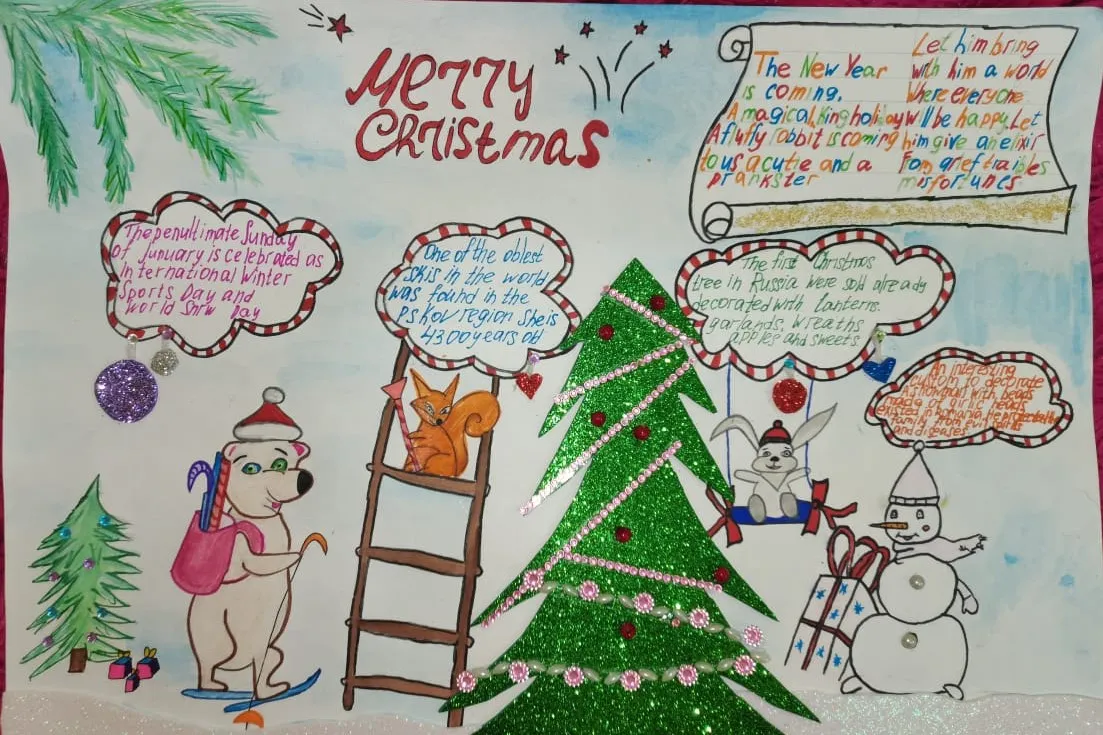 Merry
Christmas
The New Year
is coming.
A magical, king holiday
A fluffy rabbit is coming
to us a cutie and a
prankster
Let him bring
with him a world
Where everyone
will be happy. Let
him give an elixir
from grief traibles
misfortunes
The penultimate Sunday
of Junuary is celebrated as
International Winter
Sports Day and
World Snrw Day
One of the oblest
skis in the world
was found in the
pskov region She is
4300 years old
The first Christmas
tree in Russia were sold already
decorated with lanterns.
garlands, wreaths
apples and sweets
An interesting
custom to decorate
with beads
made of garlic heads
existed in Romania. He protected the
family from evil spirits
and diseases